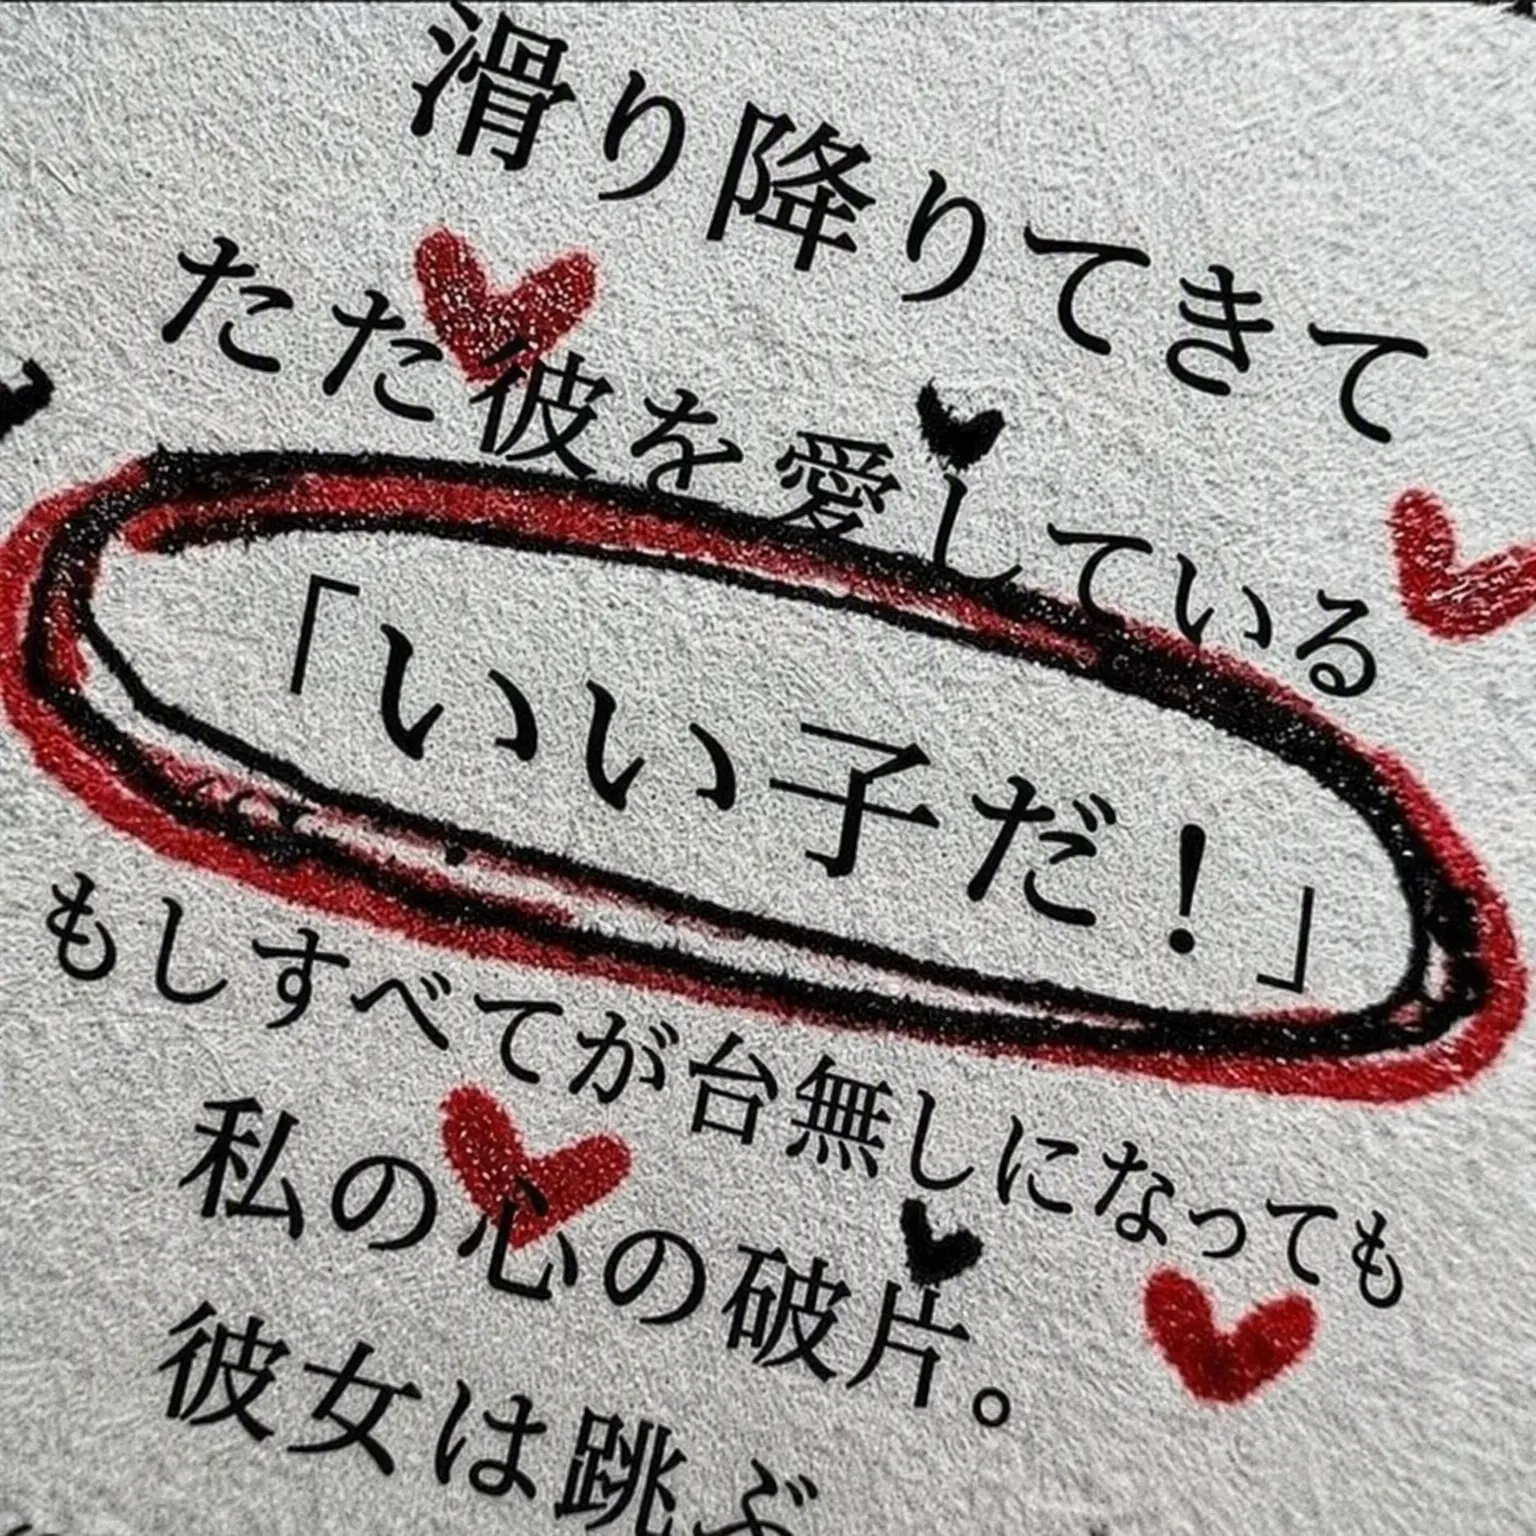 滑り降りてきて
たた彼を愛している
「いい子だ！」
もしすべてが台無しになっても
私の心の破片。
彼女は跳ぶ